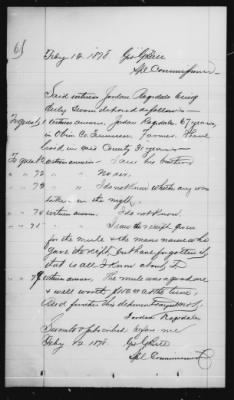 6)
Feby 12 1878 Geo G Dill
Spl Commissioner
Said witness Jordan Ragsdale being
duly sworn deposed as follows—
To quest 1 witness answers. Jordan Ragsdale 67 years,
in Obion Co Tennessee. Farmer. Have
lived in this County 31 years—
To ques witness answers— I am his brother
" " 72 " No sir.
" " 73 " I do not know which any
in the
" " 74 witness answers. I do not know.
" " 75 " I saw the receipt given
for the mule & the mans name who
gave the receipt, but have forgotten it,
that is all I know about it
" 76 witness answers. The mule was a good one
& well worth at the time.
And further this deponent sayeth not
Jordan Ragsdale
Sworn to & subscribed before me
Feby 12 1878. Geo G Dill
Spl Commissioner